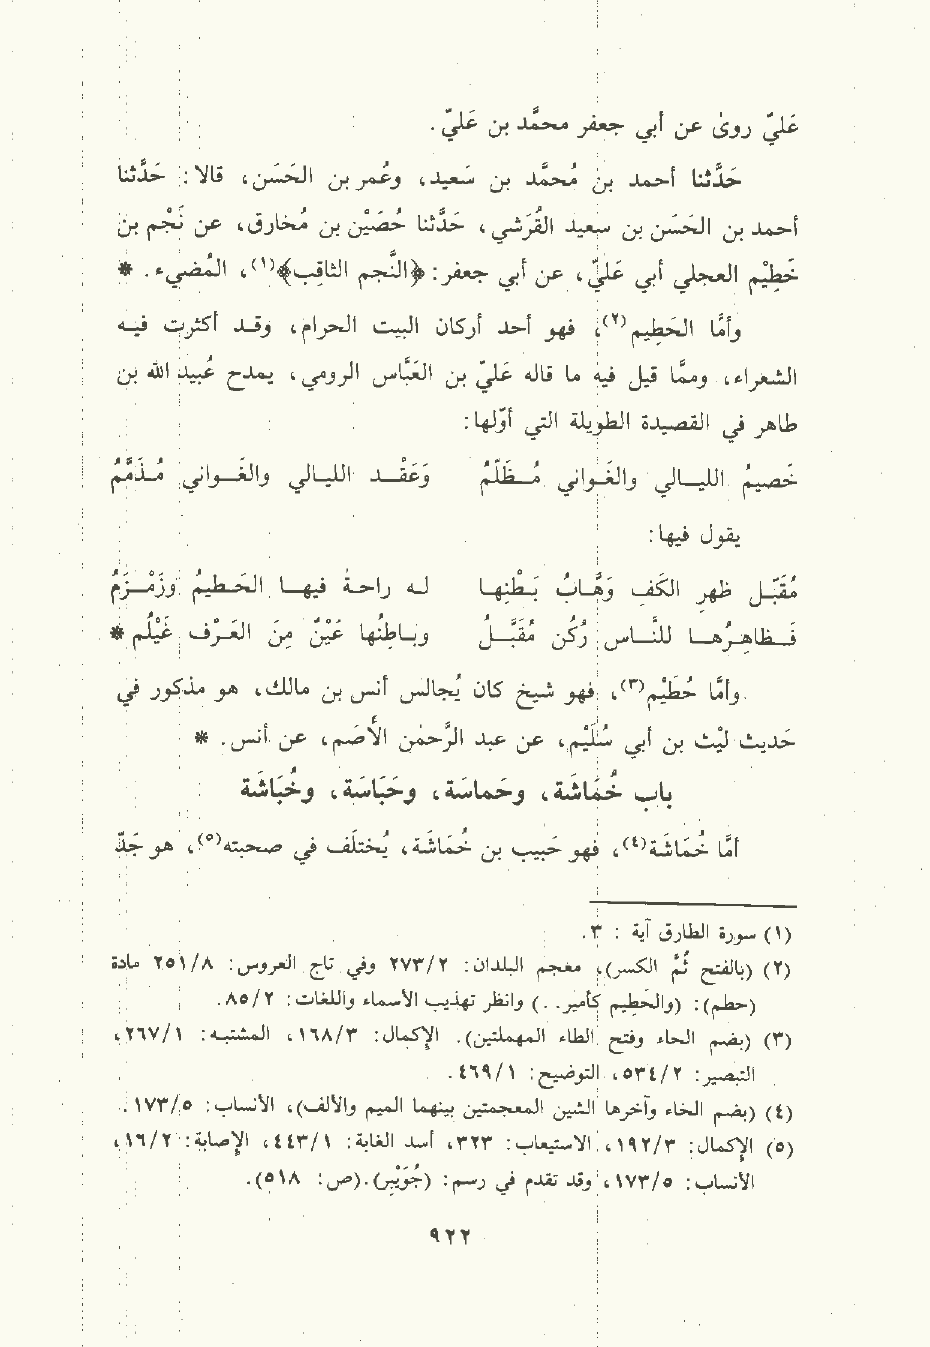 عَليّ روىٰ عن أبي جعفر محمَّد بن عَليّ.
حَدَّثنا أحمد بن مُحمَّد بن سَعيد، وعُمر بن الحَسَن، قالا: حَدَّثنا
أحمد بن الحَسَن بن سعيد القُرَشي، حَدَّثنا حُصَيْن بن مُخارق، عن نَجْم بن
خَطِيْم العجلي أبي عَليّ، عن أبي جعفر: ﴿النَّجم الثاقِب﴾(١)، المُضيء. *
وأمَّا الحَطِيم(٢)، فهو أحد أركان البيت الحرام، وقد أكثرت فيه
الشعراء، وممَّا قيل فيه ما قاله عَليّ بن العَبَّاس الرومي، يمدح عُبيد الله بن
طاهر في القصيدة الطويلة التي أوّلها:
خَصيمُ الليالي والغَواني مُظَلَّمُ وَعَقْد الليالي والغَواني مُذَمَّمُ
يقول فيها:
مُقَبّل ظهر الكَفِ وَهَّابُ بَطْنِها له راحةُ فيها الحَطيمُ وزَمْزَمُ
فَظاهِرُها للنَّاس رُكُن مُقَبَّلُ وباطِنُها عَيْنٌ مِنَ العَرْف غَيْلُم *
وأمَّا خُطَيْم(٣)، فهو شيخ كان يُجالس أنس بن مالك، هو مذكور في
حَديث لَيْث بن أبي سُلَيْم، عن عبد الرَّحمٰن الأَصَم، عن أنس. *
باب خُمَاشَة، وحَماسَة، وحَبَاسَة، وخُبَاشَة
أمَّا خُمَاشَة(٤)، فهو حَبيب بن خُمَاشَة، يُختلَف في صحبته(٥)، هو جَدّ
(١) سورة الطارق آية : ٣.
(٢) (بالفتح ثُمَّ الكسر)، معجم البلدان: ٢٧٣/٢ وفي تاج العروس: ٢٥١/٨ مادة
(حطم): (والحَطِيم كأَمير..) وانظر تهذيب الأسماء واللغات: ٨٥/٢.
(٣) (بضم الحاء وفتح الطاء المهملتين). الإكمال: ١٦٨/٣، المشتبه: ٢٦٧/١،
التبصير: ٥٣٤/٢، التوضيح: ٤٦٩/١.
(٤) (بضم الخاء وآخرها الشين المعجمتين بينهما الميم والألف)، الأنساب: ١٧٣/٥.
(٥) الإكمال: ١٩٢/٣، الاستيعاب: ٣٢٣، أسد الغابة: ٤٤٣/١، الإصابة: ١٦/٢،
الأنساب: ١٧٣/٥، وقد تقدم في رسم: (جُوَيْبِر). (ص: ٥١٨).
٩٢٢